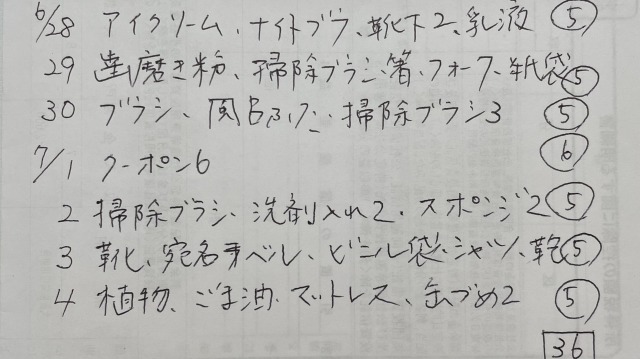 6/28 アイクリーム、ナイトブラ、靴下2、乳液 ⑤
29 歯磨き粉、掃除ブラシ、箸、フォーク、紙袋 ⑤
30 ブラシ、風呂ふた、掃除ブラシ3 ⑤
7/1 クーポン6 ⑥
2 掃除ブラシ、洗剤入れ2、スポンジ2 ⑤
3 靴、宛名ラベル、ビニル袋、シャツ、鞄 ⑤
4 植物、ごま油、マットレス、缶づめ2 ⑤
36